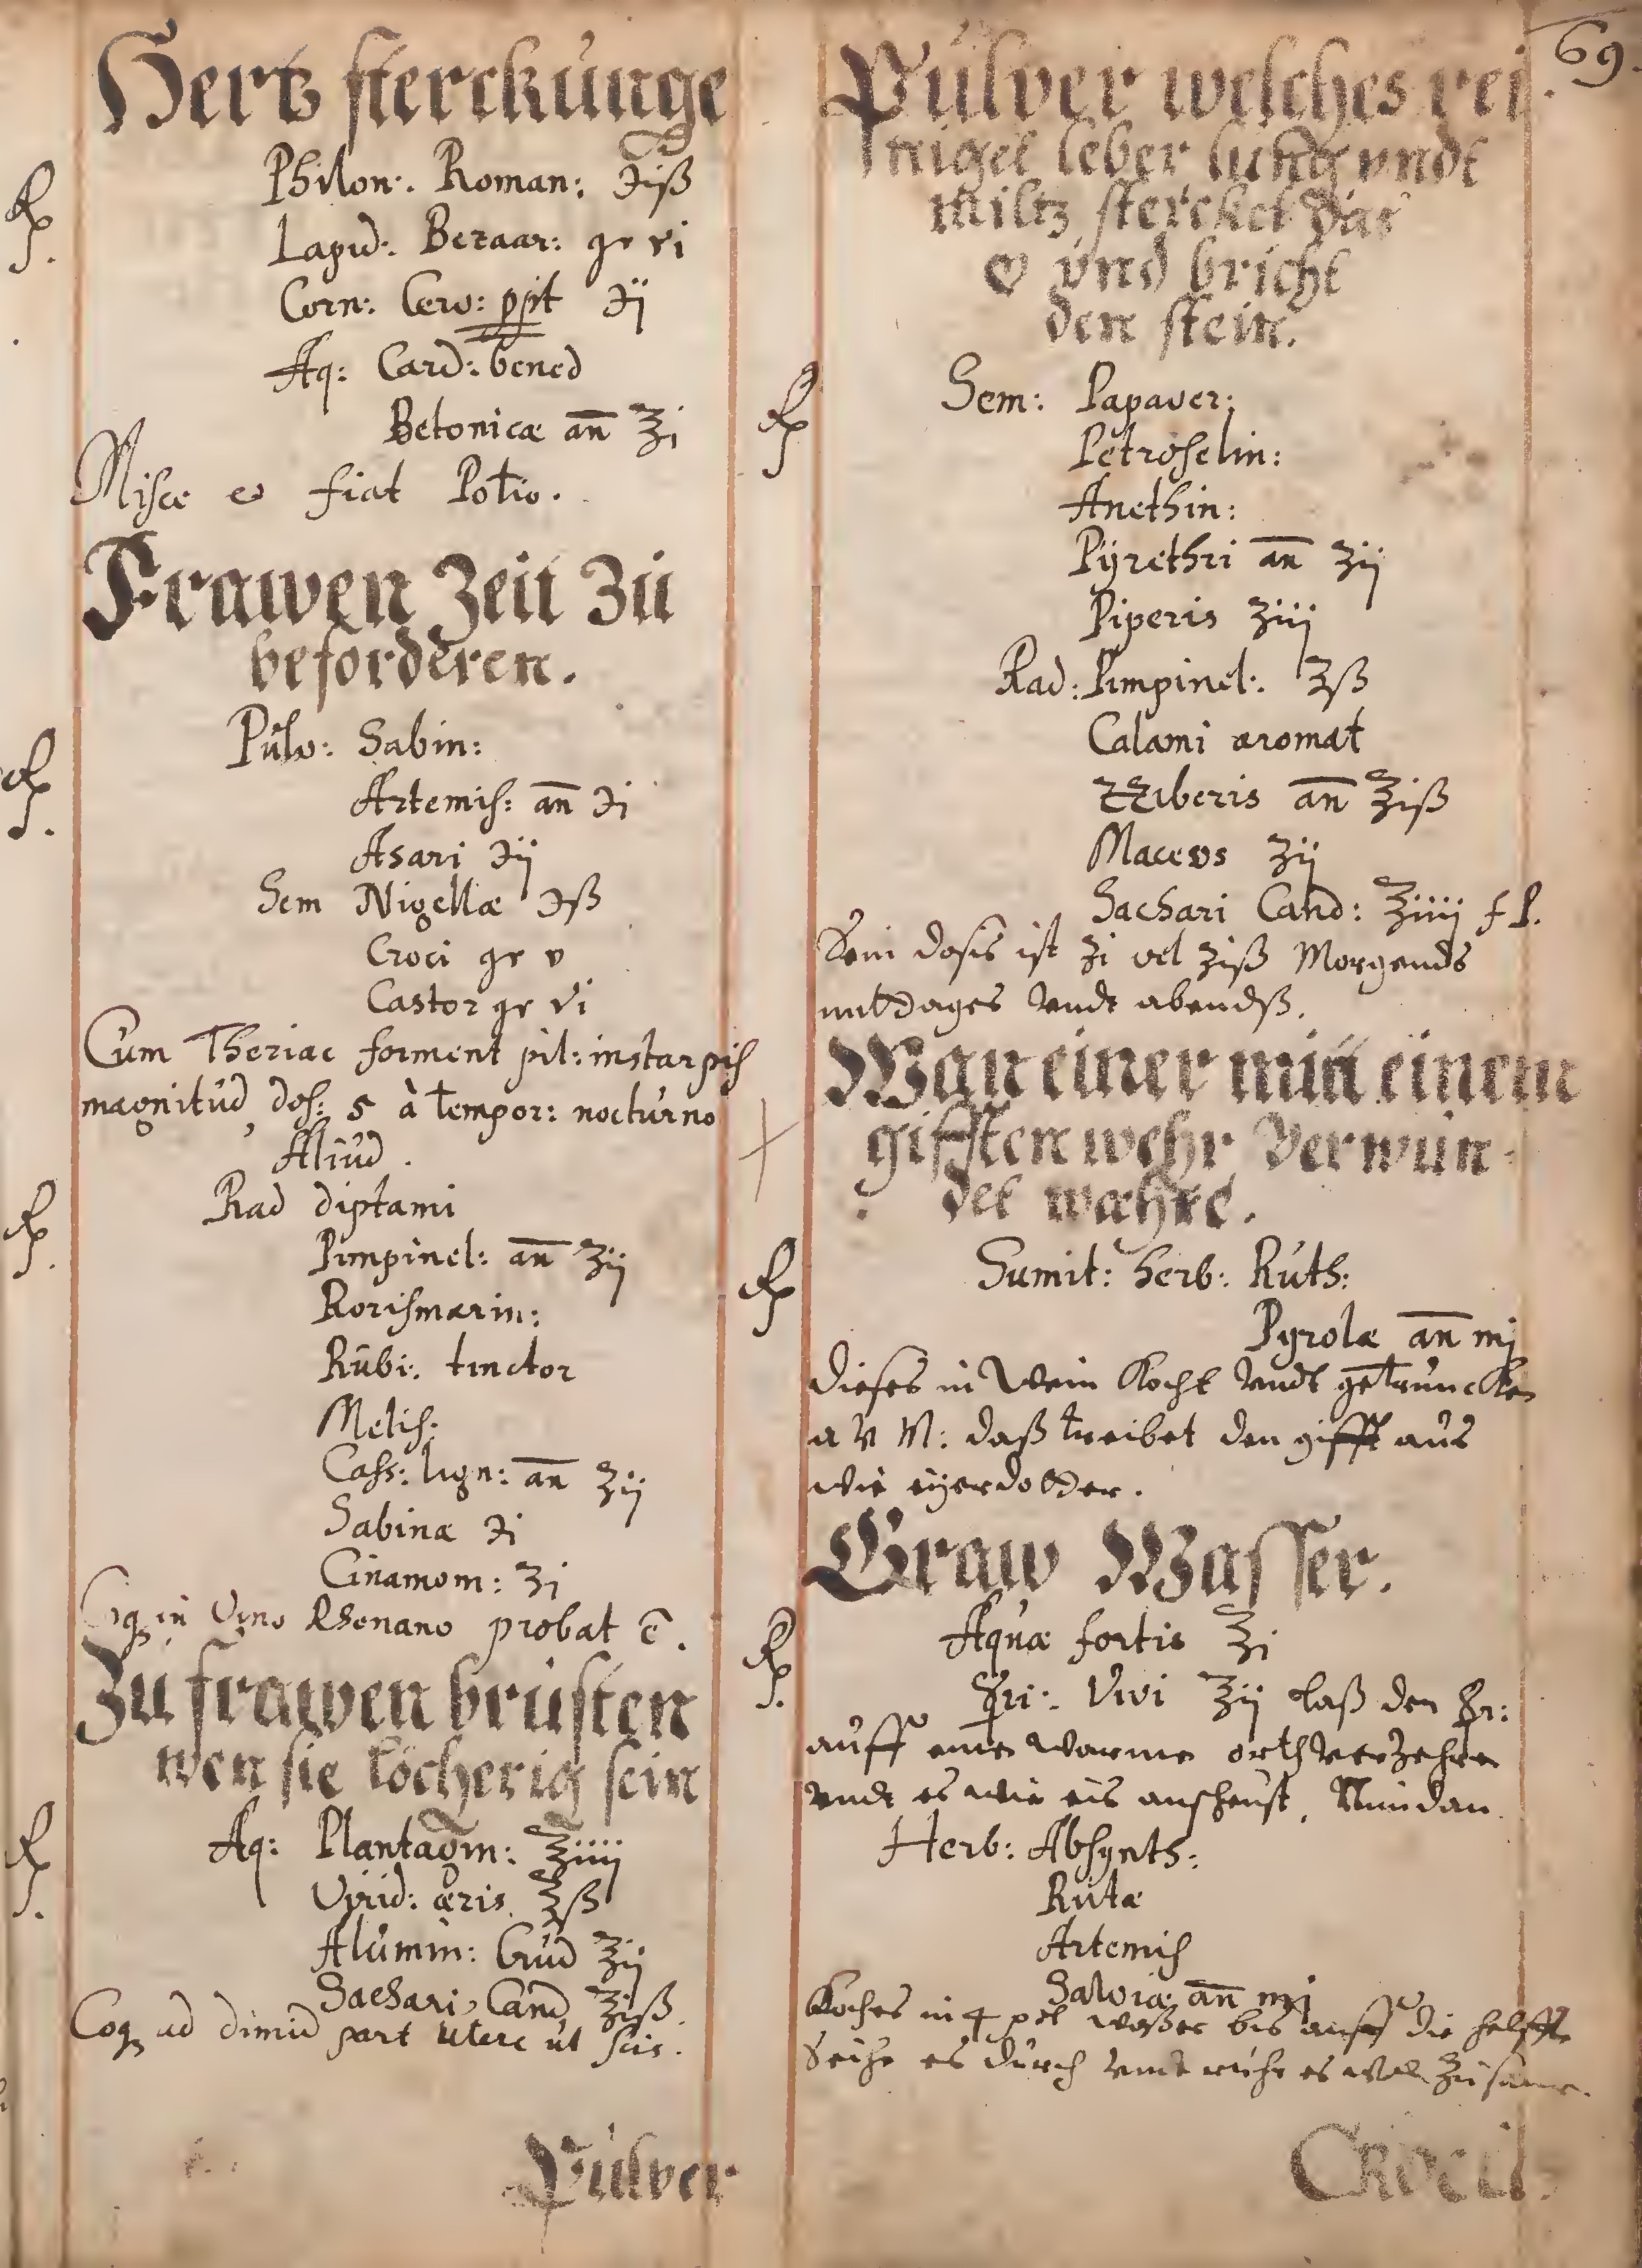 69.
Hertz sterckunge
℞ Philon: Roman: ℈iß
Lapid: Bezaar: gr vi
Corn: Cerv: ppt ℈ij
Aq: Card: bened
Betonicæ añ ℥i
Misce & fiat Potio.
Frawen Zeit Zu
beforderen.
℞ Pulv: Sabin:
Artemis: añ ℈i
Asari ℈ij
Sem Nigellæ ℈ß
Croci gr v
Castor gr vi
Cum Theriac forment pil: instar pis
magnitud, dos: 5 à tempor: nocturno
Aliud.
℞ Rad diptami
Pimpinel: añ ʒij
Rorismarin:
Rubi: tinctor
Melis:
Cass: lign: añ ʒij
Sabinæ ℈i
Cinamom: ʒi
Coq in Vino Rhenano probat ē.
Zu frawen brusten
wen sie löcherig sein
℞ Aq: Plantagin: ℥iiij
Virid: æris ℥ß
Alumin: Crud ʒij
Sachari Cand ℥iß.
Coq ad dimid part utere ut scis.
Pulver
Pulver welches rei
niget leber lung vndt
miltz stercket das
♡ vnd bricht
den stein.
℞ Sem: Papaver:
Petroselin:
Anethin:
Pyrethri añ ʒij
Piperis ʒiij
Rad: Pimpinel: ʒß
Calami aromat
ZZiberis añ ℥iß
Maceos ʒij
Sachari Cand: ℥iiij f P.
Sein dosis ist ʒi vel ʒiß Morgends
mitdages vndt abendß.
Wan einer mitt einem
gifften wehr verwun-
det wæhre.
℞ Sumit: herb: Ruth:
Pyrolæ añ mj
dieses in Wein kocht vndt getruncken
a v M: daß treibet den gifft aus
wie eyerdotter.
Graw Wasser.
℞ Aquæ fortis ℥i
☿ri: Vivi ʒij laß den ☿r:
auff eine warme orth verzehren
vndt es wie eis anscheust, Nim dan
Herb: Absynth:
Rutæ
Artemis
Salviæ añ mj
Koches in 4 wasser bis auff die helffte
Seihe es durch vndt es
Croci: